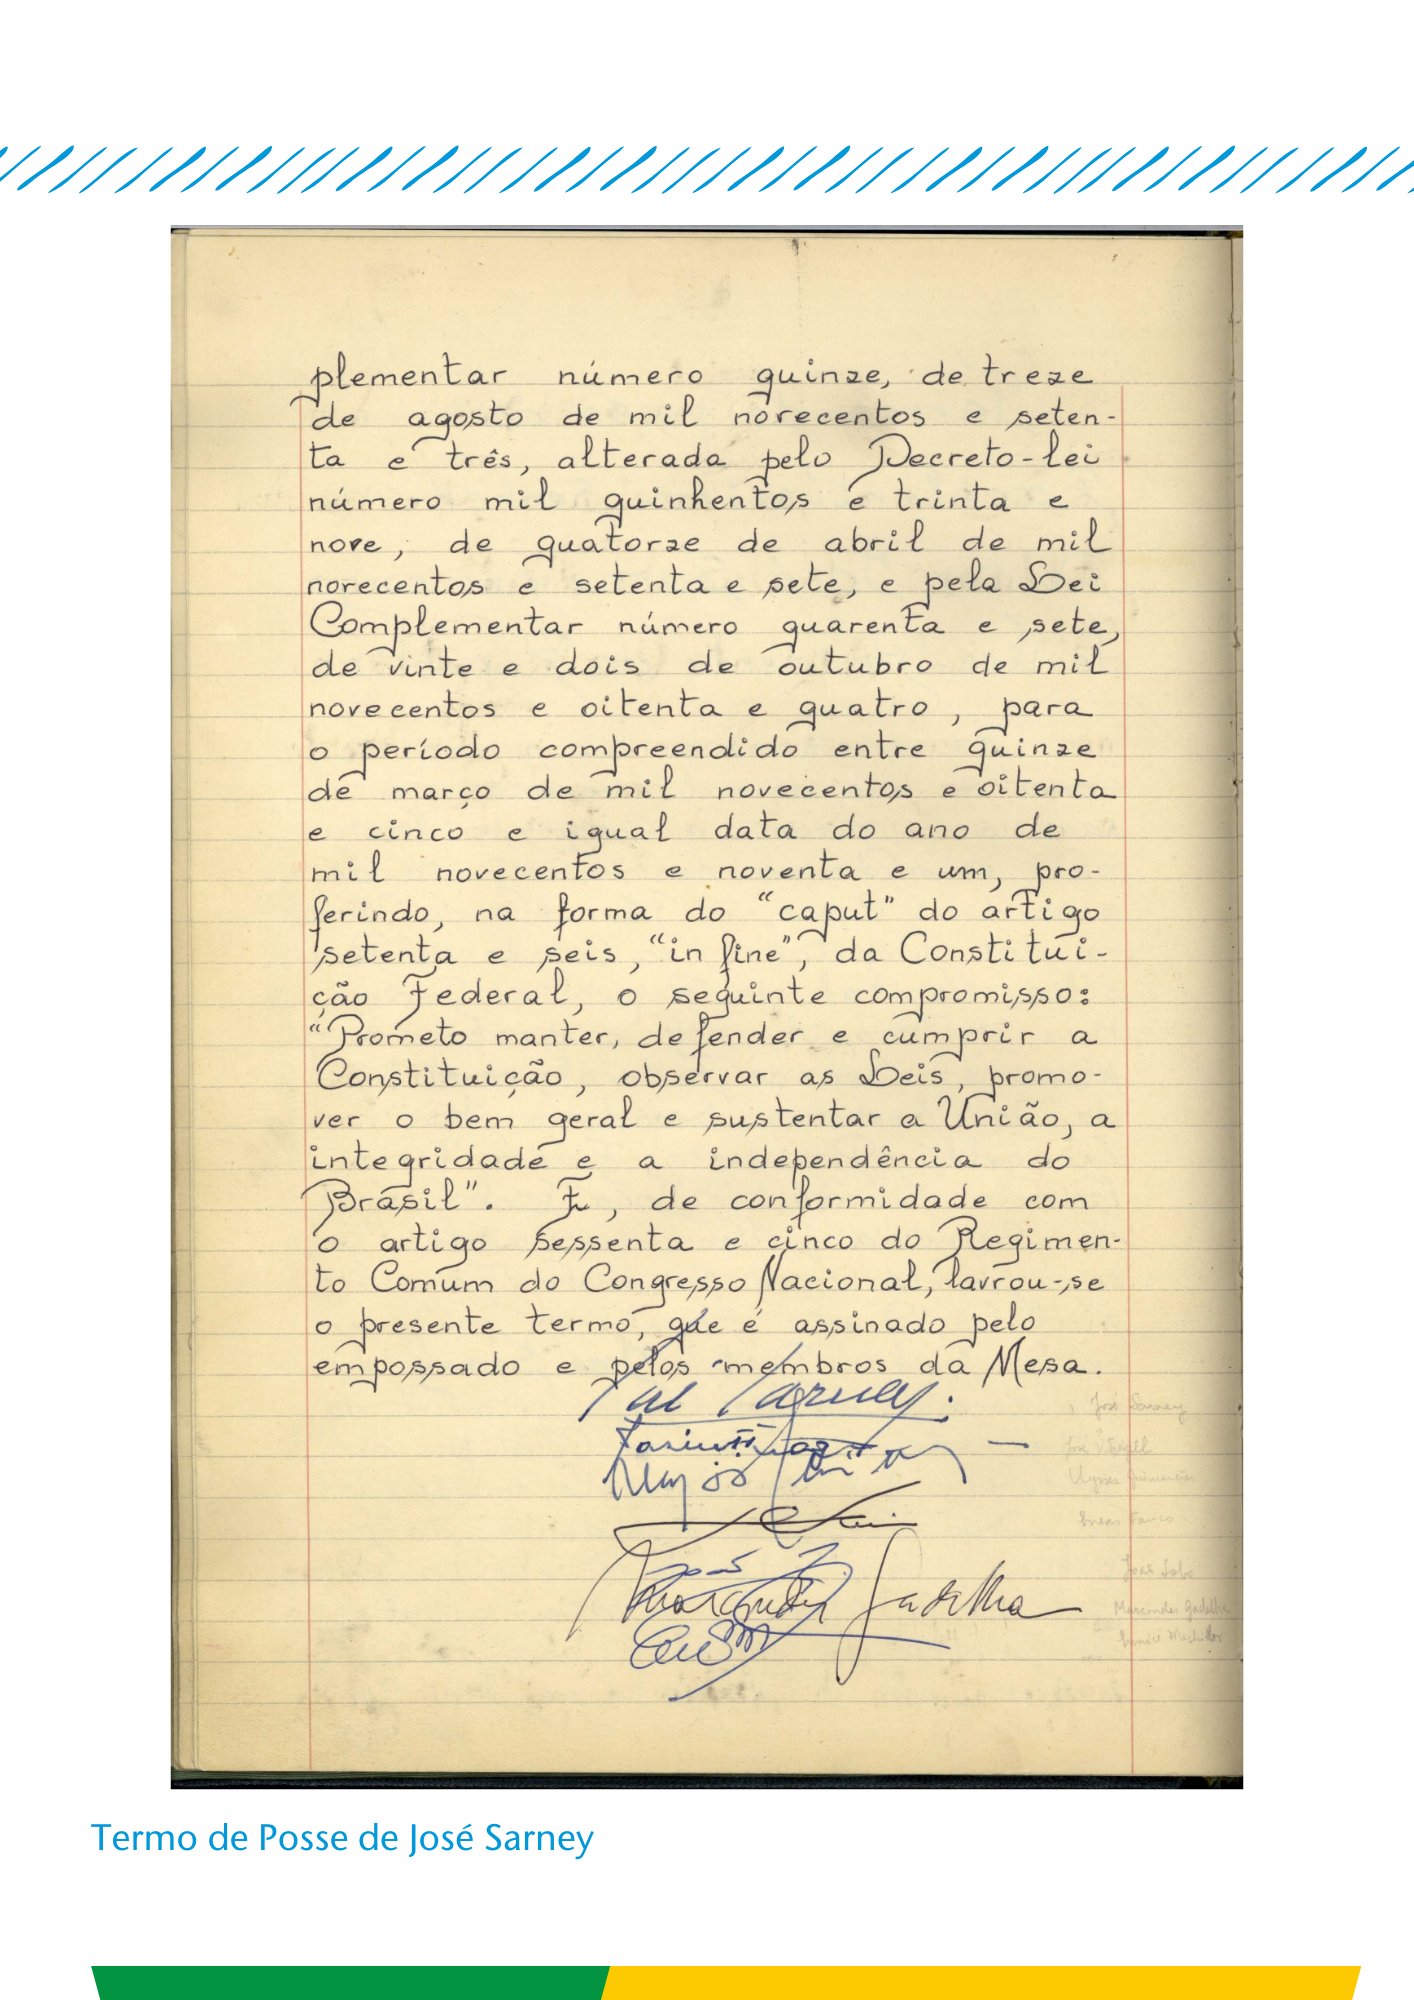 plementar número quinze, de treze
de agosto de mil novecentos e seten-
ta e três, alterada pelo Decreto-lei
número mil quinhentos e trinta e
nove, de quatorze de abril de mil
novecentos e setenta e sete, e pela Lei
Complementar número quarenta e sete,
de vinte e dois de outubro de mil
novecentos e oitenta e quatro, para
o período compreendido entre quinze
de março de mil novecentos e oitenta
e cinco e igual data do ano de
mil novecentos e noventa e um, pro-
ferindo, na forma do "caput" do artigo
setenta e seis, "in fine", da Constitui-
ção Federal, o seguinte compromisso:
"Prometo manter, defender e cumprir a
Constituição, observar as Leis, promo-
ver o bem geral e sustentar a União, a
integridade e a independência do
Brasil". E, de conformidade com
o artigo sessenta e cinco do Regimen-
to Comum do Congresso Nacional, lavrou-se
o presente termo, que é assinado pelo
empossado e pelos membros da Mesa.
José Sarney
Ulysses Guimarães
Marcondes Gadelha
Termo de Posse de José Sarney